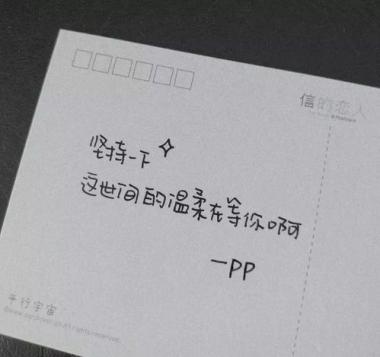 信的恋人
坚持一下
这世间的温柔在等你啊
—PP
平行宇宙